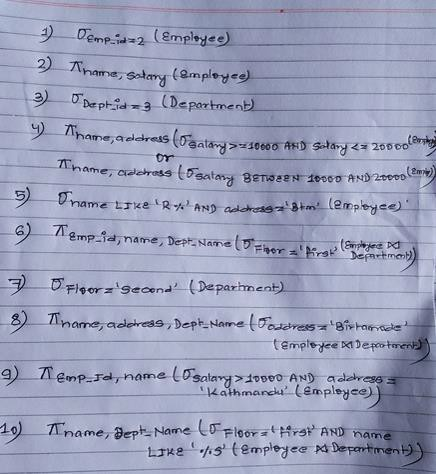 1) σEmp_id=2 (Employee)
2) πname, salary (Employee)
3) σDept_id=3 (Department)
4) πname, address (σsalary>=10000 AND salary <= 20000 (Employ
or
πname, address (σsalary BETWEEN 10000 AND 20000 (Emp
5) σname LIKE 'R%' AND address='Btm' (Employee)
6) πEmp_id, name, Dept_Name (σFloor='first' (Employee ⋈
Department))
7) σFloor='Second' (Department)
8) πname, address, Dept_Name (σaddress='Birtamode'
(Employee ⋈ Department))
9) πEmp_Id, name (σsalary>10000 AND address =
'Kathmandu' (Employee))
10) πname, Dept_Name (σFloor='first' AND name
LIKE '%s' (Employee ⋈ Department))